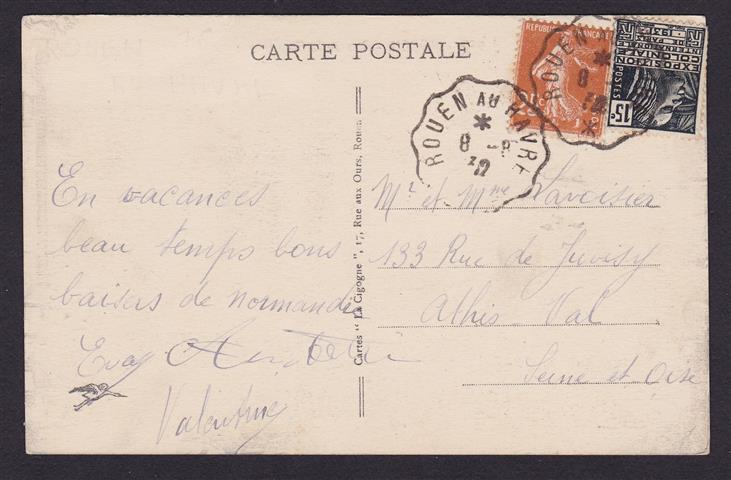 CARTE POSTALE
REPUBLIQUE FRANÇAISE
POSTES
15c
ROUEN AU HAVRE
8 -8
32
ROUEN AU
8
En vacances
beau temps bons
baisers de normandie
Eva
Valentine
Cartes " La Cigogne ", 17, Rue aux Ours, Rouen
Mr et Mme Lavoisier
133 Rue de Juvisy
Athis Val
Seine et Oise